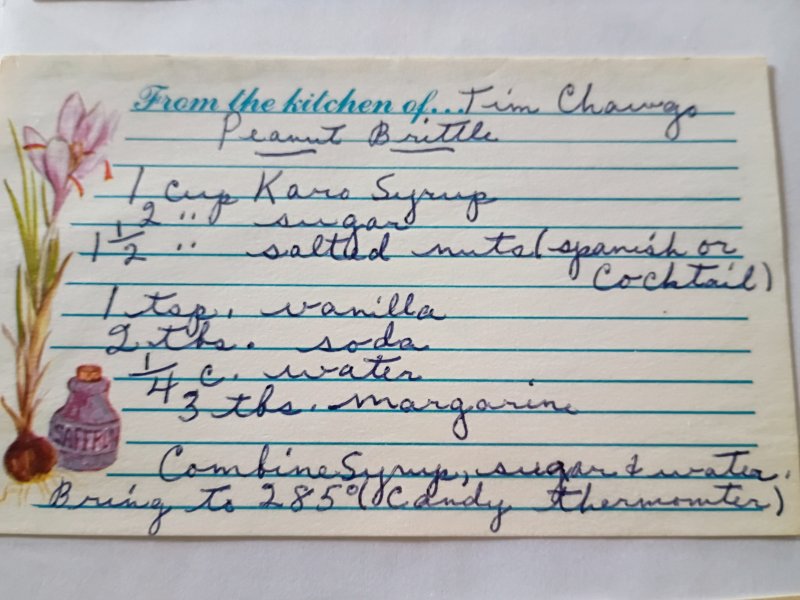 From the kitchen of...Tim Chawgo
Peanut Brittle
1 cup Karo Syrup
2 " sugar
1 1/2 " salted nuts (spanish or
Cocktail)
1 tsp. vanilla
2 tbs. soda
1/4 c. water
3 tbs. margarine
SAFFRON
Combine Syrup, sugar & water.
Bring to 285° (Candy thermomter)